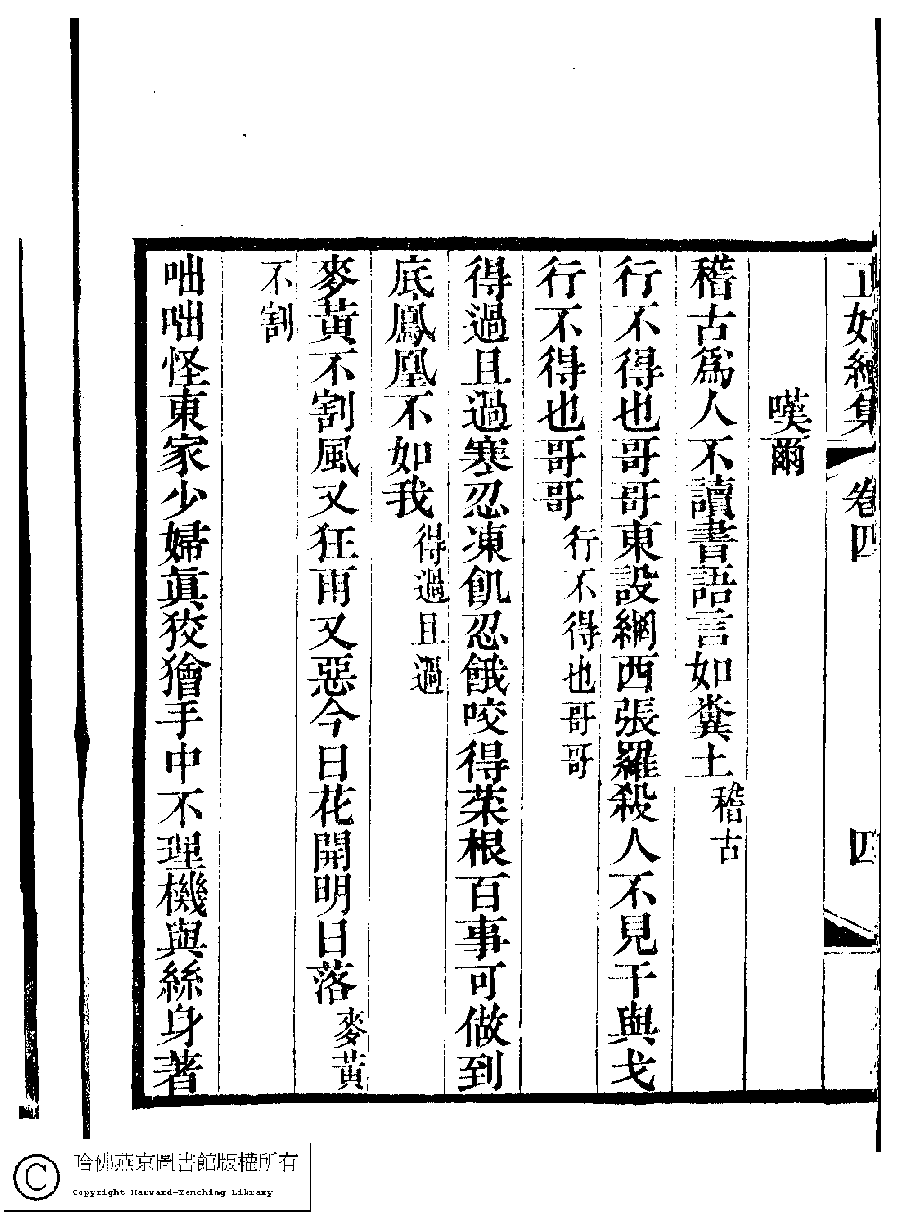 正始續集
卷四
四
嘆爾
稽古爲人不讀書語言如糞土稽古
行不得也哥哥東設網西張羅殺人不見干與戈
行不得也哥哥行不得也哥哥
得過且過寒忍凍飢忍餓咬得菜根百事可做到
底鳳凰不如我得過且過
麥黃不割風又狂雨又惡今日花開明日落麥黃
不割
咄咄怪東家少婦眞狡獪手中不理機與絲身著
哈佛燕京圖書館版權所有
Copyright Harvard-Yenching Library